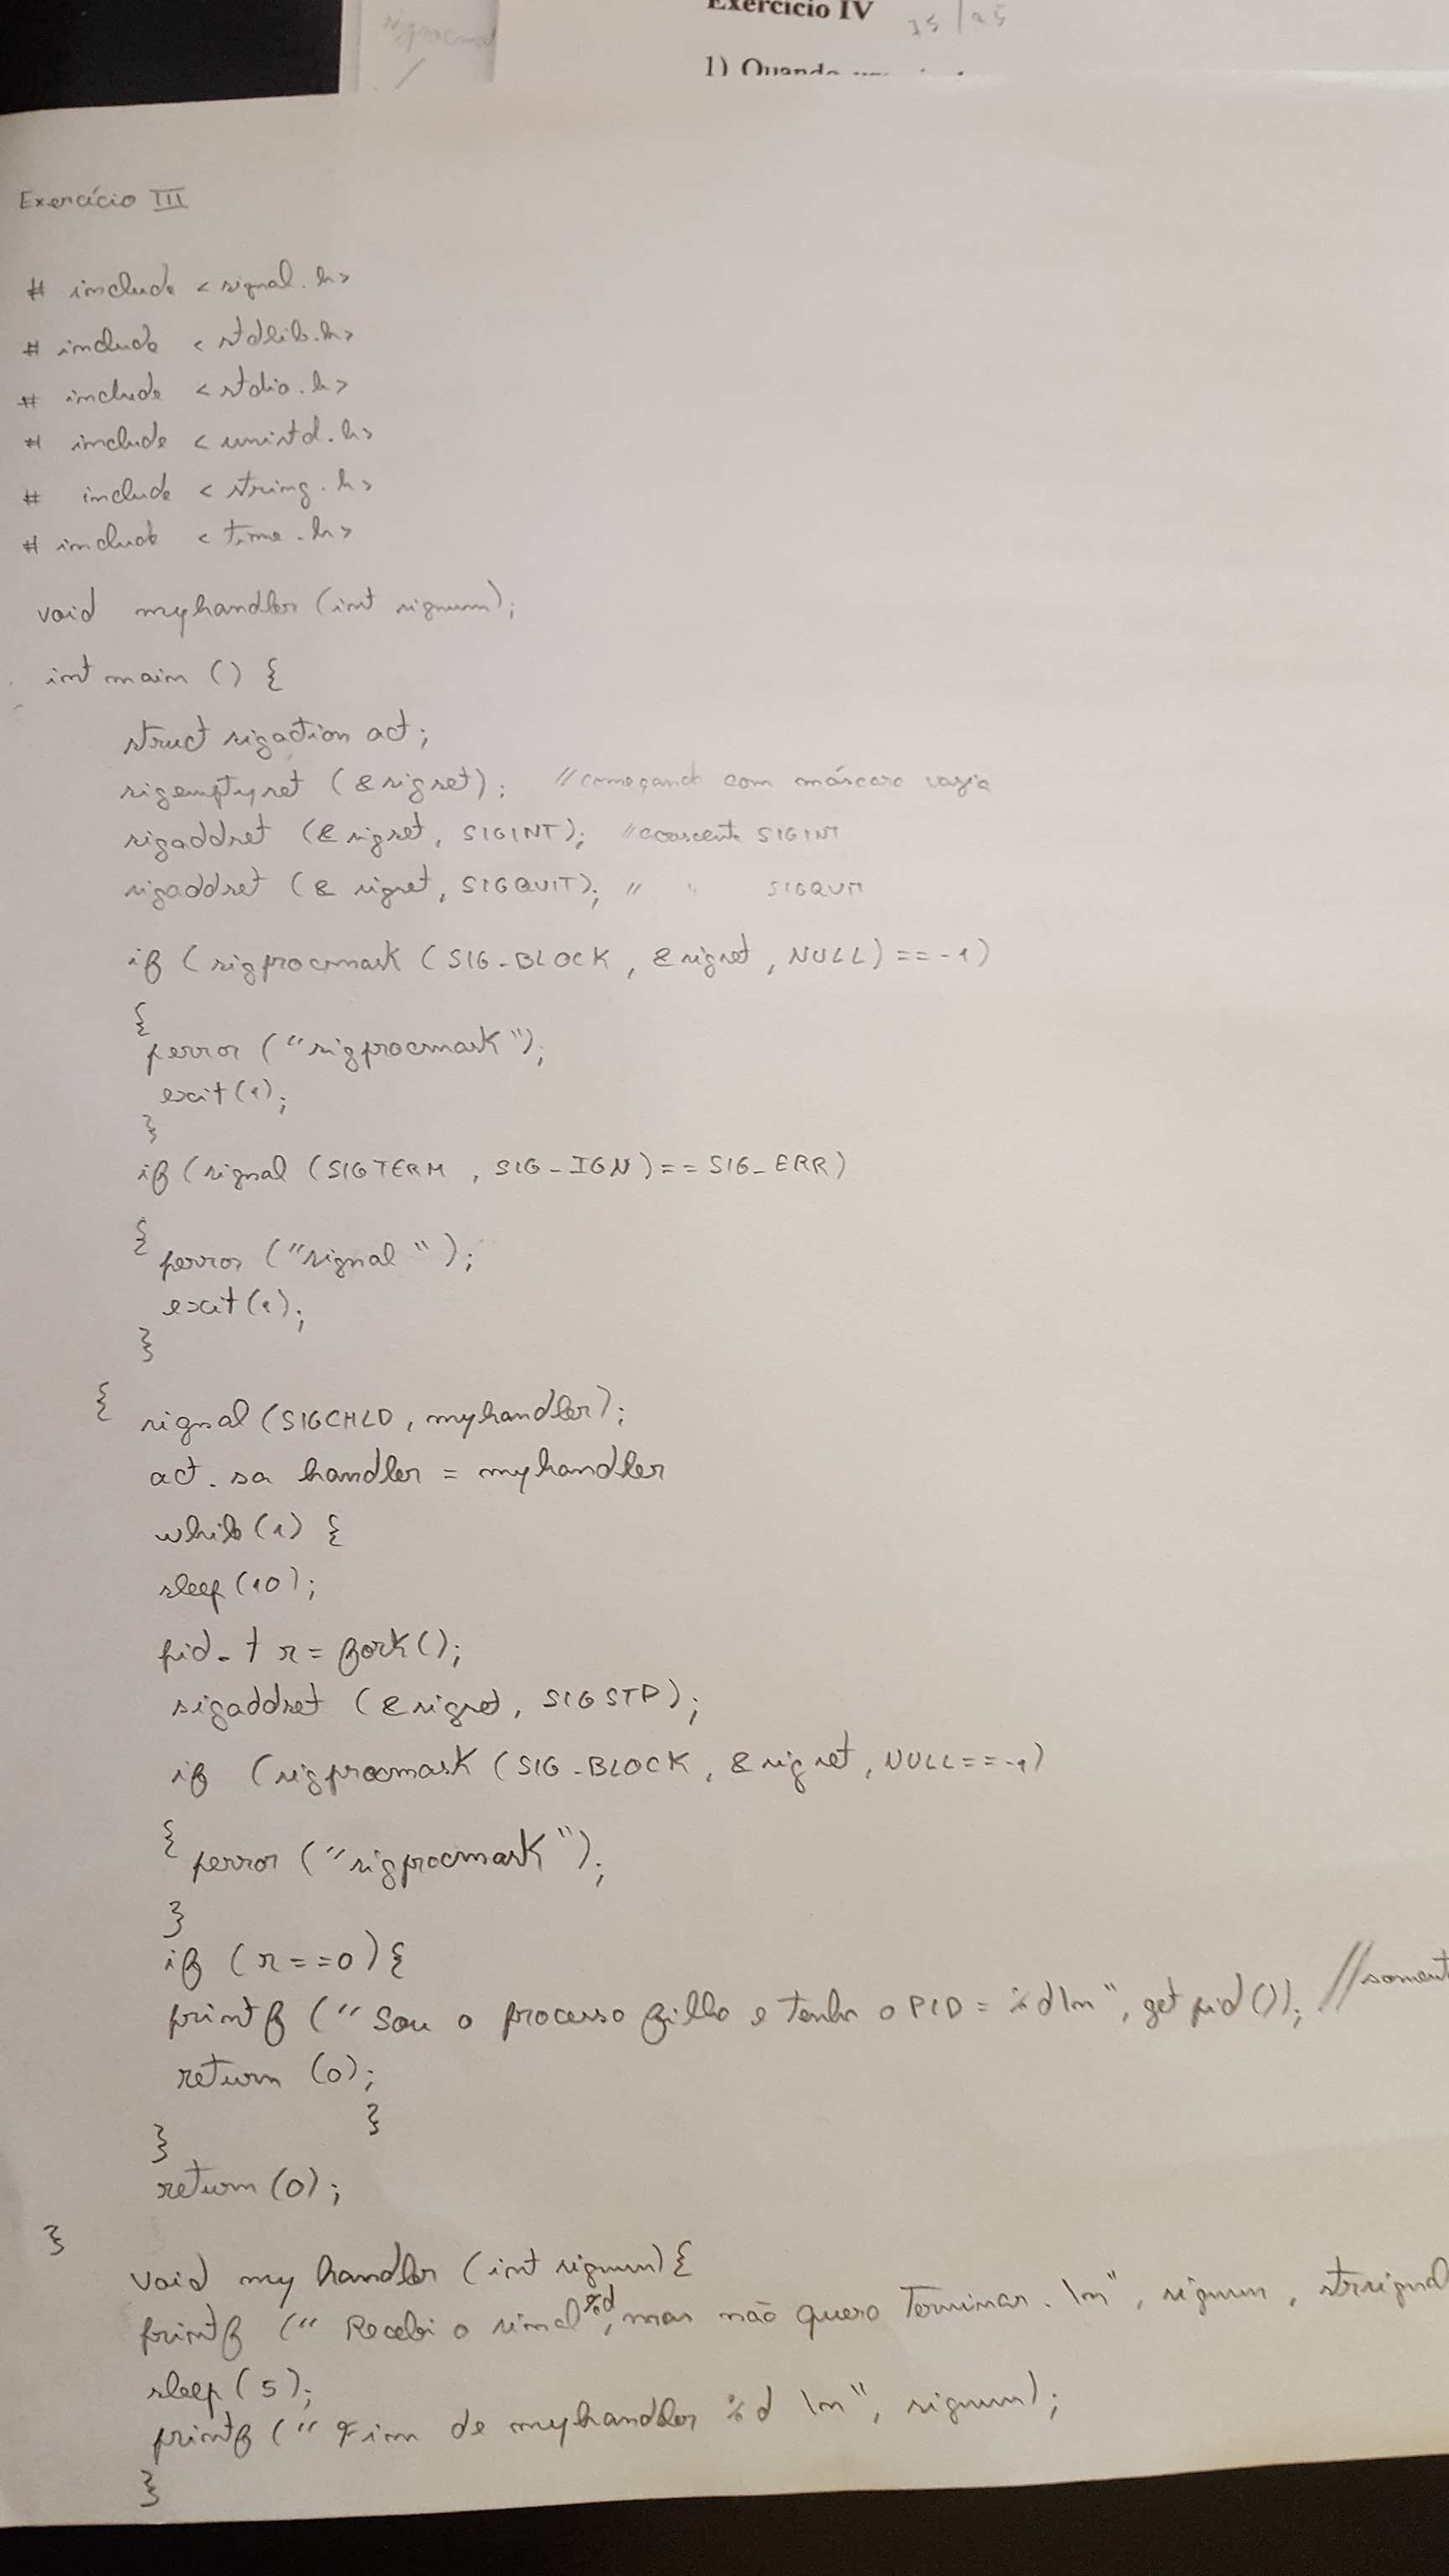 Exercício IV
25/25
1) Quando
Exercício III
# include <signal.h>
# include <stdlib.h>
# include <stdio.h>
# include <unistd.h>
# include <string.h>
# include <time.h>
void myhandler (int signum);
int main () {
struct sigaction act;
sigemptyset (&sigset); //começando com máscara vazia
sigaddset (&sigset, SIGINT); //acrescenta SIGINT
sigaddset (& sigset, SIGQUIT); // " SIGQUIT
if (sigprocmask (SIG_BLOCK, &sigset, NULL) == -1)
{
perror ("sigprocmask");
exit(1);
}
if (signal (SIGTERM, SIG_IGN) == SIG_ERR)
{ perror ("signal");
exit(1);
}
{ signal (SIGCHLD, myhandler);
act. sa handler = myhandler
while (1) {
sleep (10);
pid_t r = fork();
sigaddset (&sigset, SIGSTP);
if (sigprocmask (SIG_BLOCK, &sigset, NULL == -1)
{ perror ("sigprocmask");
}
if (r == 0) {
printf ("Sou o processo filho e tenho o PID = %d\n", getpid()); //soment
return (0);
}
}
return (0);
}
void my handler (int signum) {
printf (" Recebi o sinal %d, mas não quero Terminar. \n", signum, strsignal
sleep (5);
printf (" Fim de myhandler %d \n", signum);
}